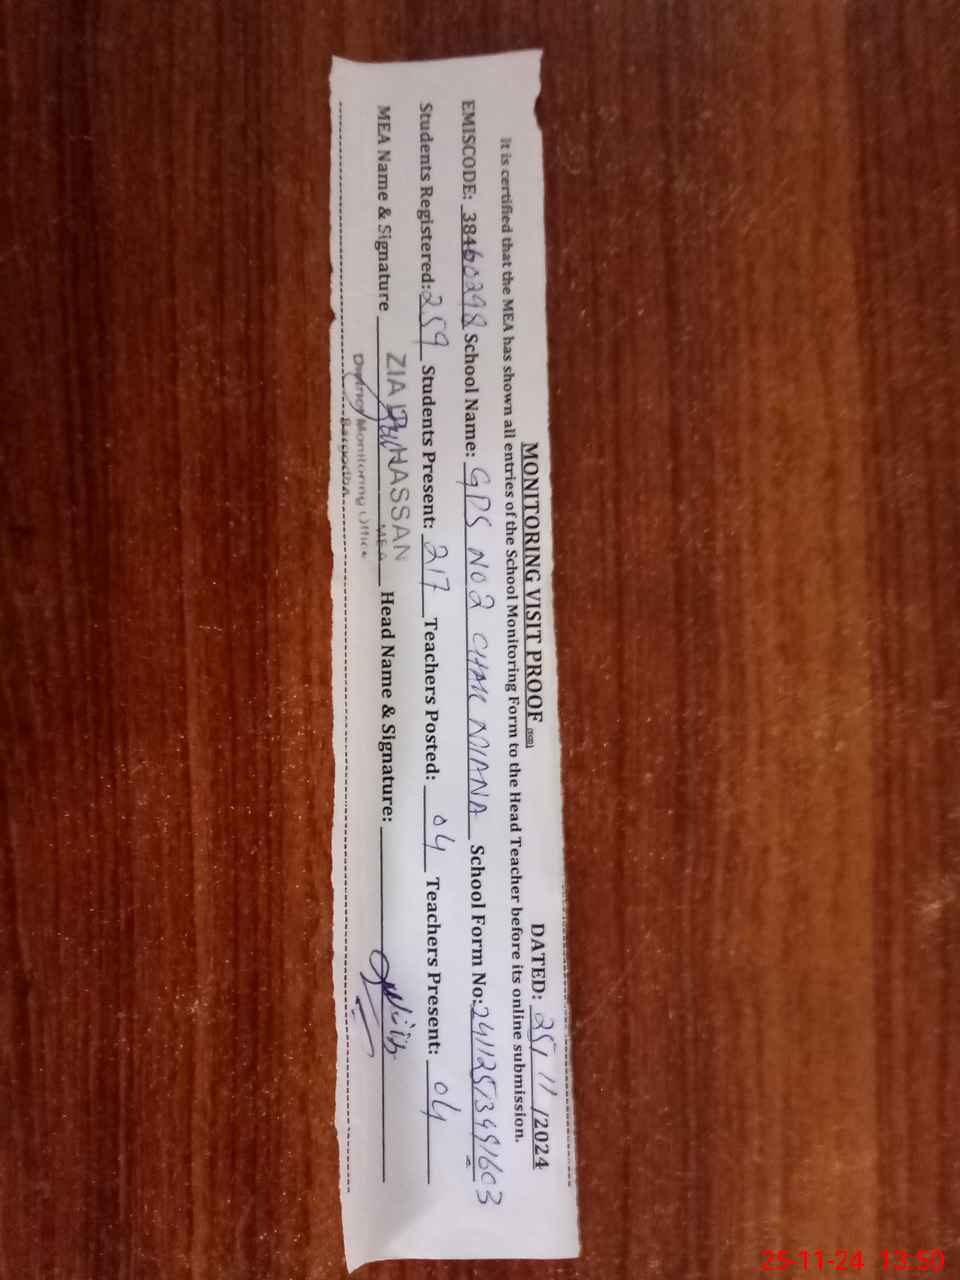 MONITORING VISIT PROOF (SED) DATED: 25/11/2024
It is certified that the MEA has shown all entries of the School Monitoring Form to the Head Teacher before its online submission.
EMISCODE: 38460248 School Name: GPS NO 2 CHAK MIANA School Form No:
Students Registered: 259 Students Present: 217 Teachers Posted: 04 Teachers Present: 04
MEA Name & Signature ZIA HASSAN Head Name & Signature:
MEA
District Monitoring Office
Sargodha
25-11-24 13:50